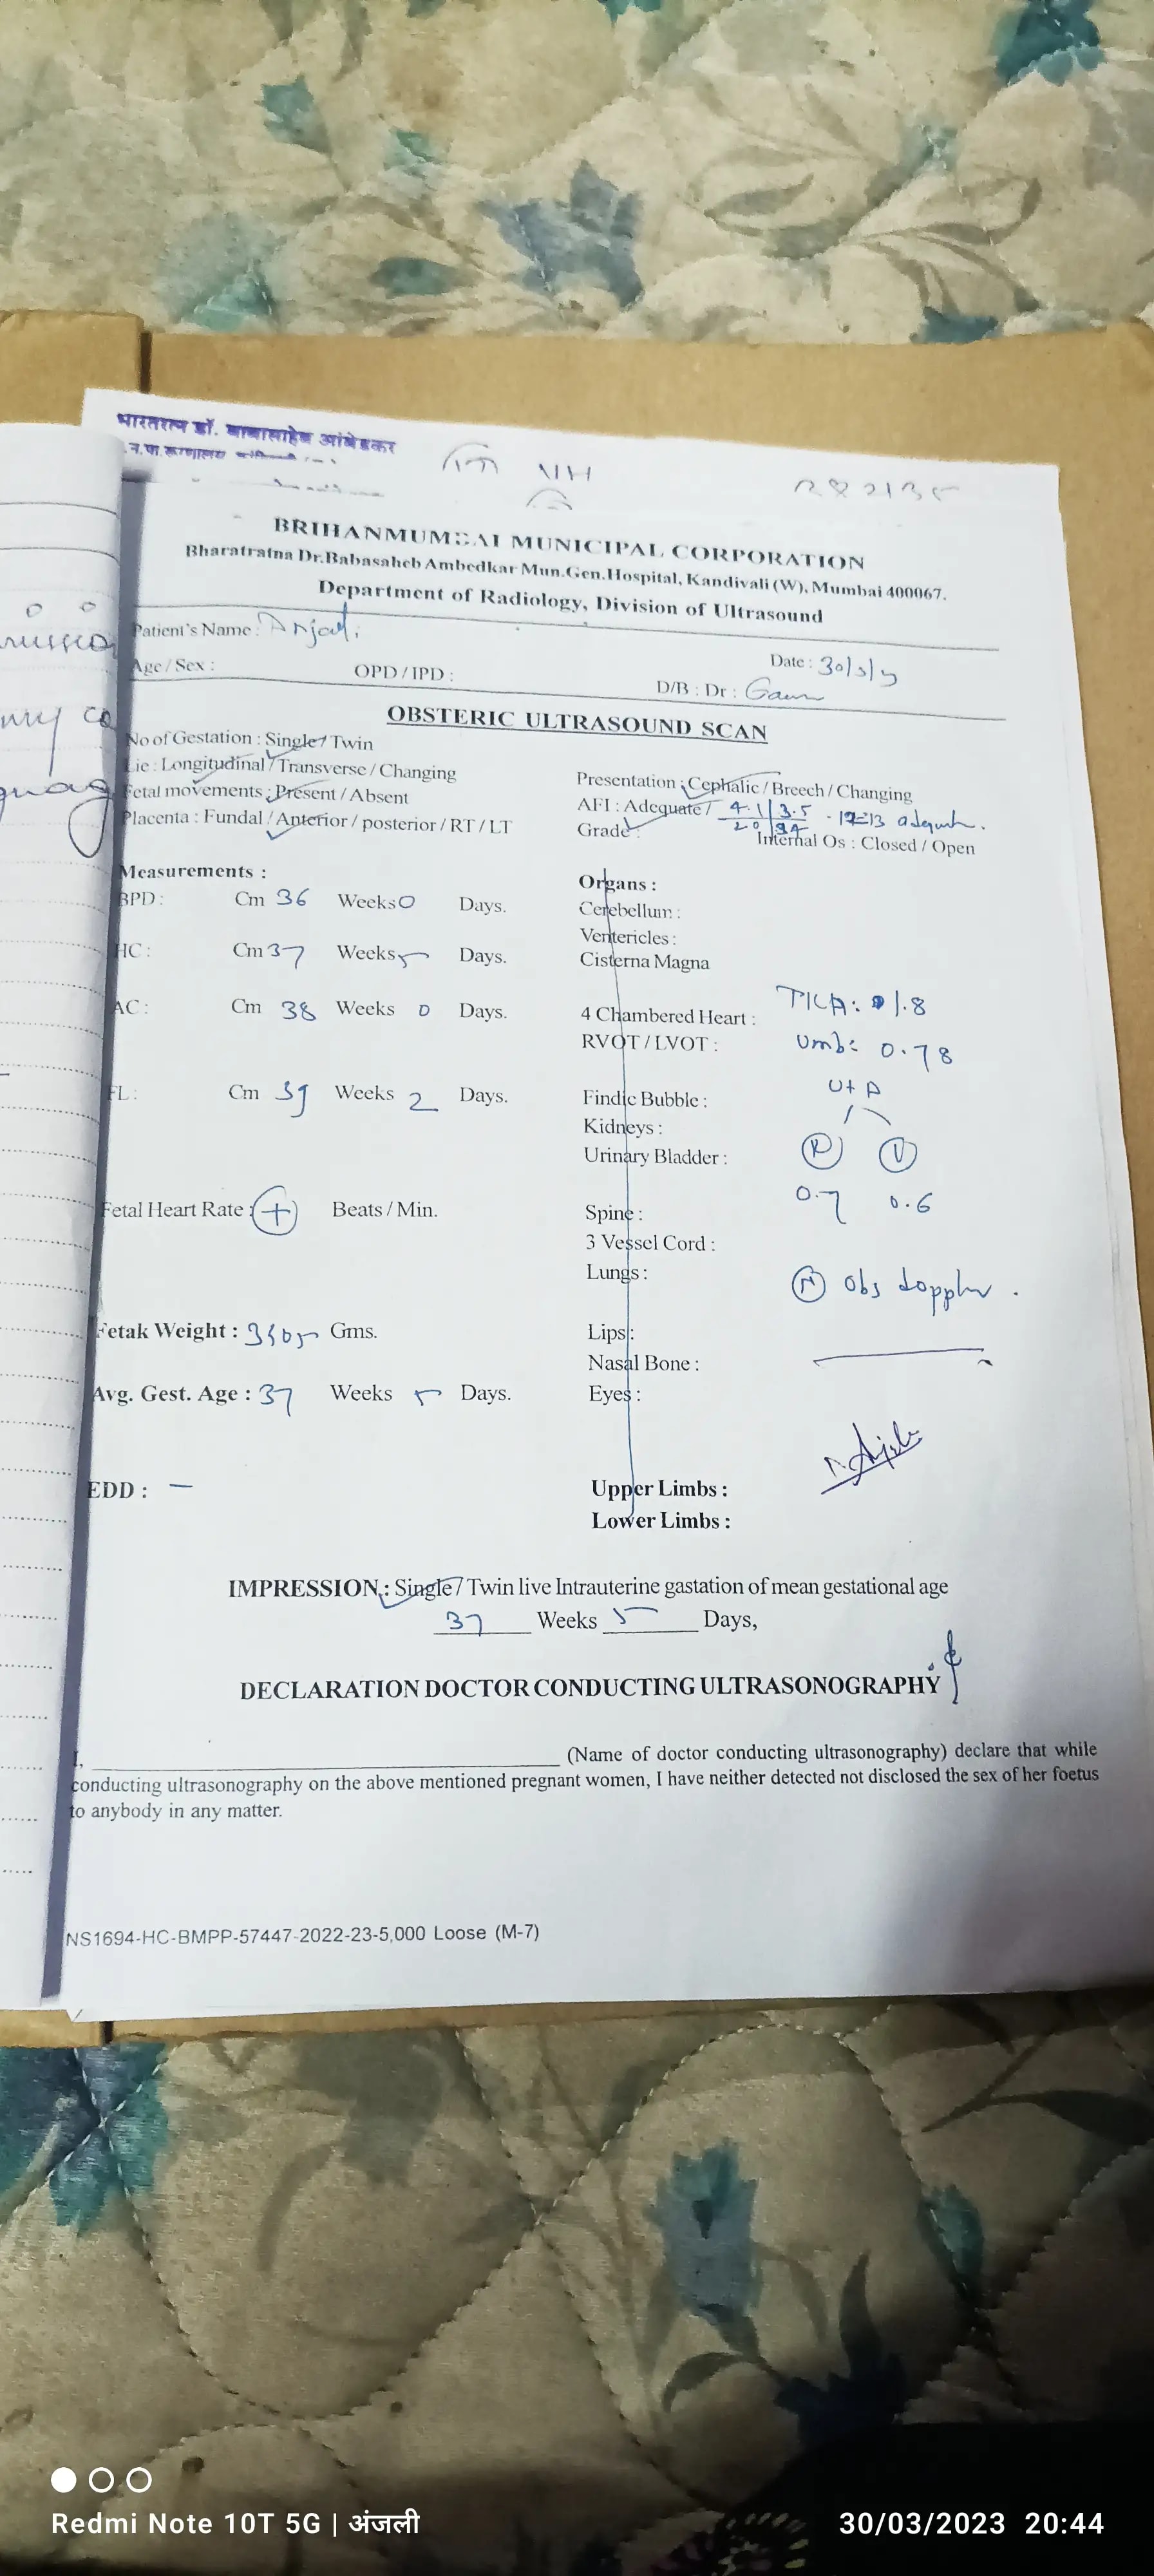 भारतरत्न डॉ. बाबासाहेब आंबेडकर
BRIHANMUMBAI MUNICIPAL CORPORATION
Bharatratna Dr.Babasaheb Ambedkar Mun.Gen.Hospital, Kandivali (W), Mumbai 400067.
Department of Radiology, Division of Ultrasound
Patient's Name : Anjali
Age / Sex : OPD / IPD : Date :
D/B : Dr :
OBSTERIC ULTRASOUND SCAN
No of Gestation : Single / Twin
Lie : Longitudinal / Transverse / Changing
Fetal movements : Present / Absent
Placenta : Fundal / Anterior / posterior / RT / LT
Presentation : Cephalic / Breech / Changing
AFI : Adequate / 4.1 3.5
Grade :
Internal Os : Closed / Open
Measurements :
BPD : Cm 36 Weeks 0 Days.
HC : Cm 37 Weeks 5 Days.
AC : Cm 38 Weeks 0 Days.
FL : Cm 39 Weeks 2 Days.
Fetal Heart Rate : + Beats / Min.
Fetak Weight : Gms.
Avg. Gest. Age : 37 Weeks 5 Days.
EDD : –
Organs :
Cerebellum :
Ventericles :
Cisterna Magna
4 Chambered Heart :
RVOT / LVOT :
1.8
Umb: 0.78
Findic Bubble :
Kidneys :
Urinary Bladder :
Ut A
R
0.7 0.6
Spine :
3 Vessel Cord :
Lungs :
N Obs doppler .
Lips :
Nasal Bone :
Eyes :
Upper Limbs :
Lower Limbs :
IMPRESSION : Single / Twin live Intrauterine gastation of mean gestational age
37 Weeks 5 Days,
DECLARATION DOCTOR CONDUCTING ULTRASONOGRAPHY
I, (Name of doctor conducting ultrasonography) declare that while
conducting ultrasonography on the above mentioned pregnant women, I have neither detected not disclosed the sex of her foetus
to anybody in any matter.
NS1694-HC-BMPP-57447-2022-23-5,000 Loose (M-7)
Redmi Note 10T 5G | अंजली
30/03/2023 20:44